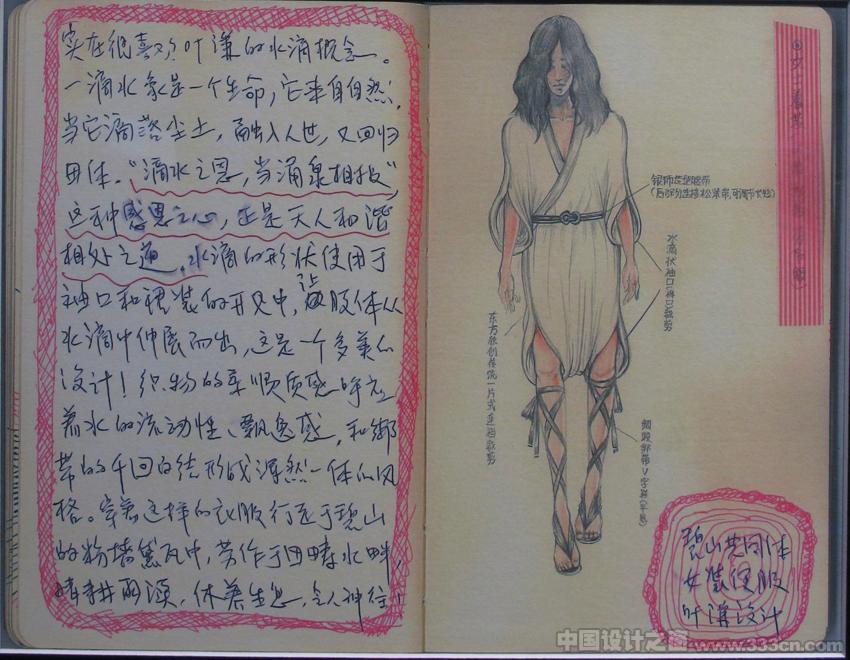 实在很喜欢叶谦的水滴概念。
一滴水象是一个生命，它来自自然，
当它滴落尘土，融入人世，又回归
田体。"滴水之恩，当涌泉相报"，
这种感恩之心，正是天人和谐
相处之道。水滴的形状使用于
袖口和裙装的开叉中，让肢体从
水滴中伸展而出，这是一个多美的
设计！织物的柔顺质感呼应
着水的流动性、飘逸感，和绑
带的千回百结形成浑然一体的风
格。穿着这样的衣服行走于碧山
的粉墙黛瓦中，劳作于田畴水畔，
晴耕雨读，休养生息，令人神往！
女士着装
腰带
(后部分连接松紧带，可调节长短)
水滴状袖口、裤口裁剪
东方独创传统一片式连裆裁剪
绸段绑带V字鞋(平底)
碧山共同体
女装便服
叶谦设计
中国设计之窗
www.333cn.com